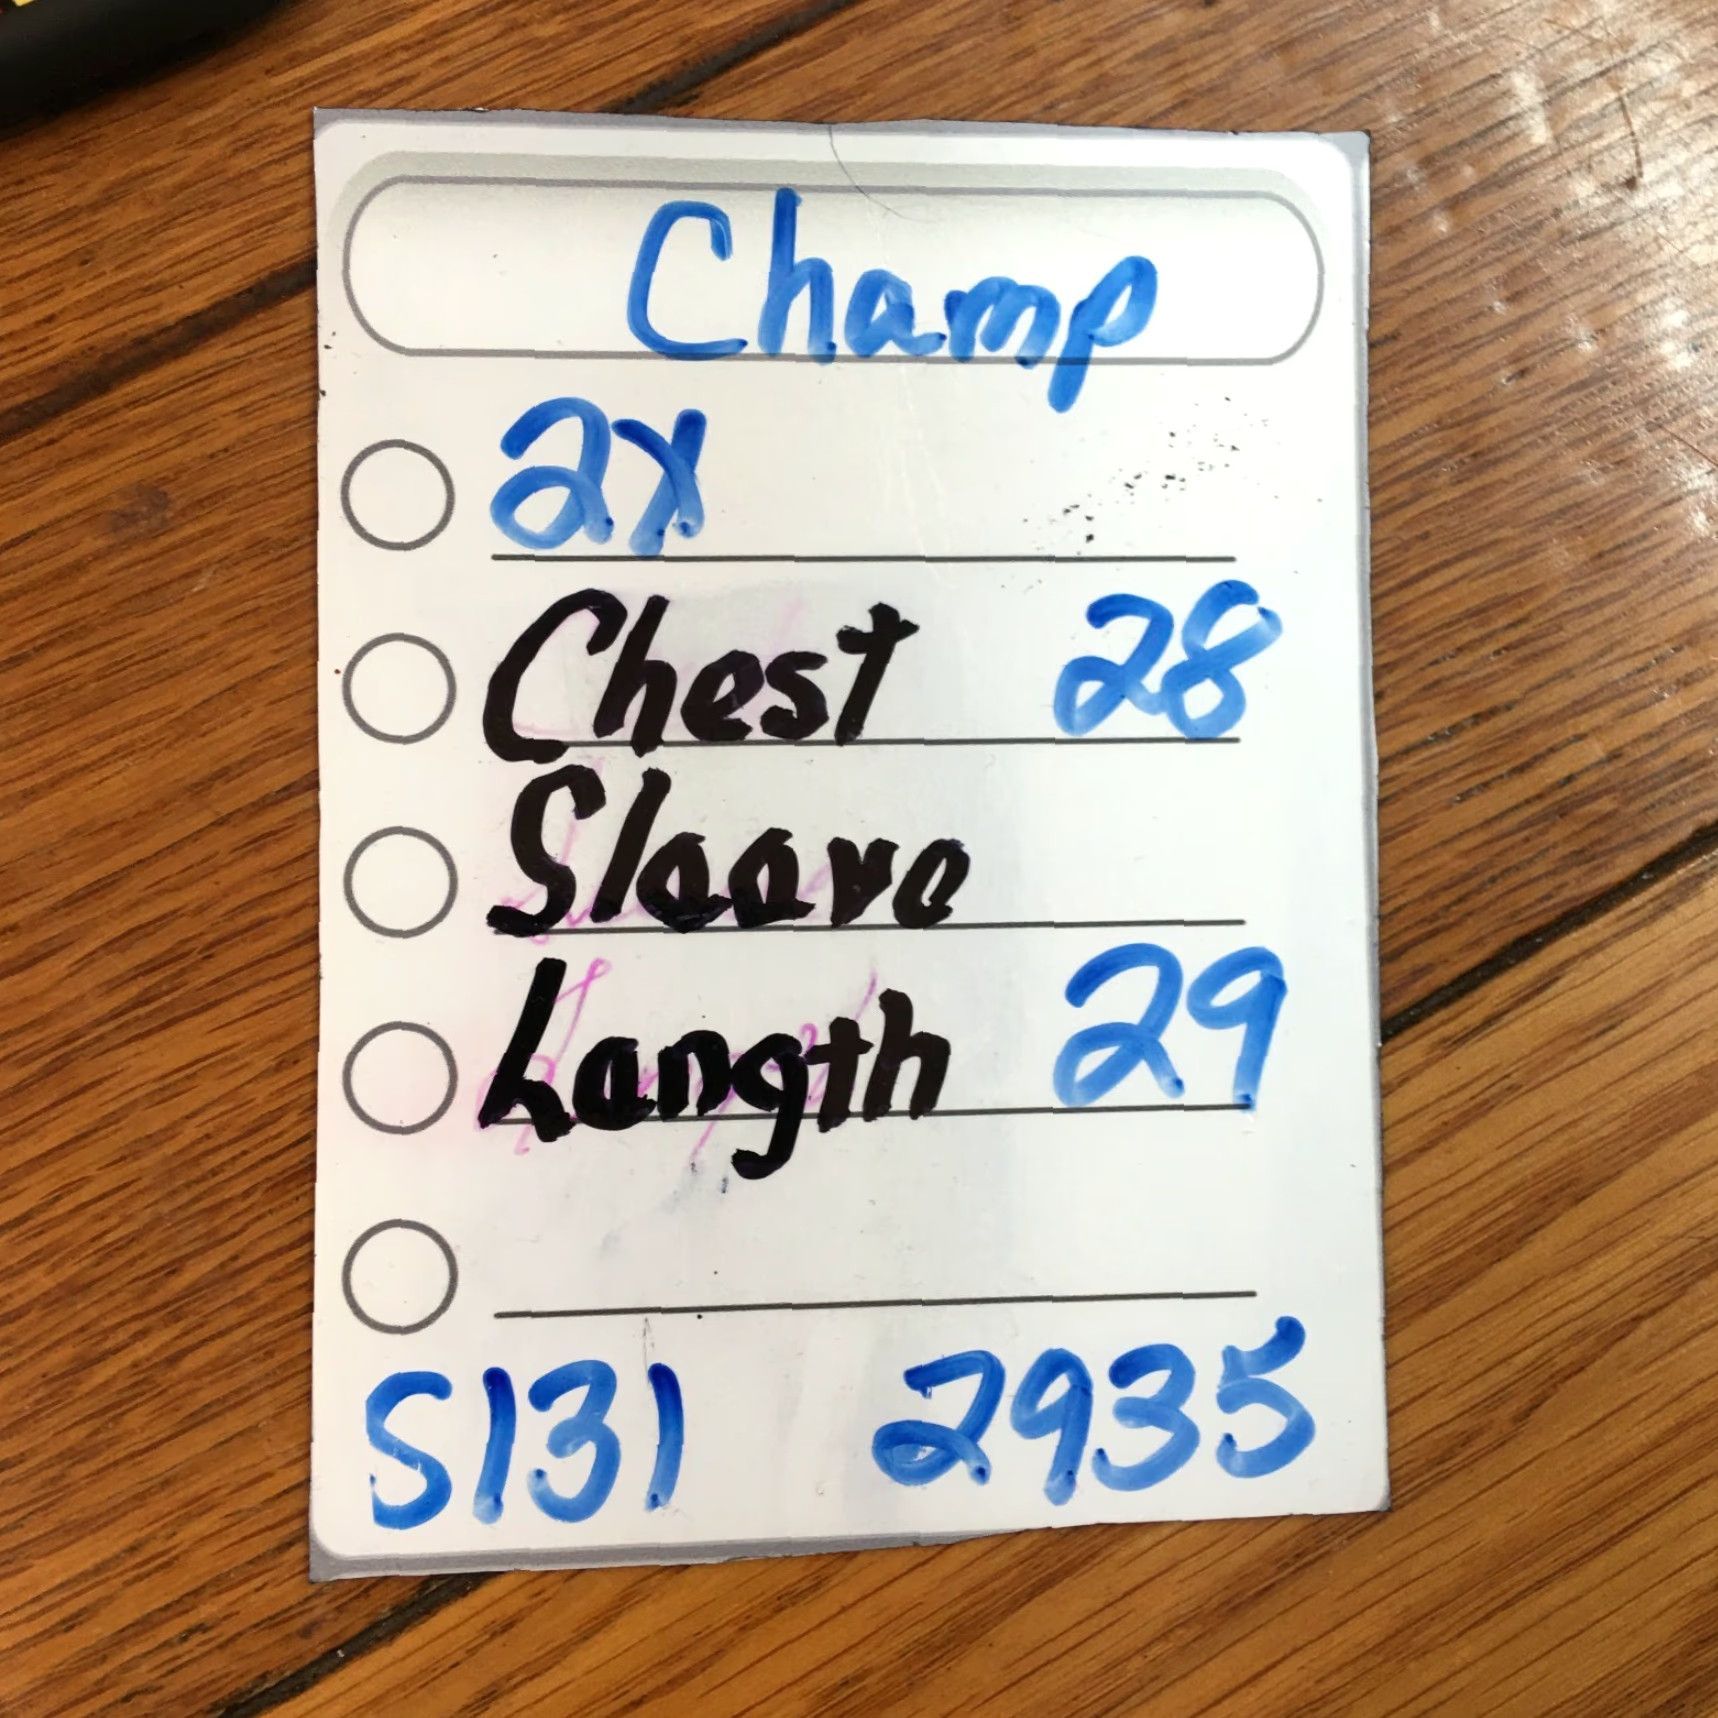 Champ
2X
Chest 28
Sleeve
Length 29
S131 2935